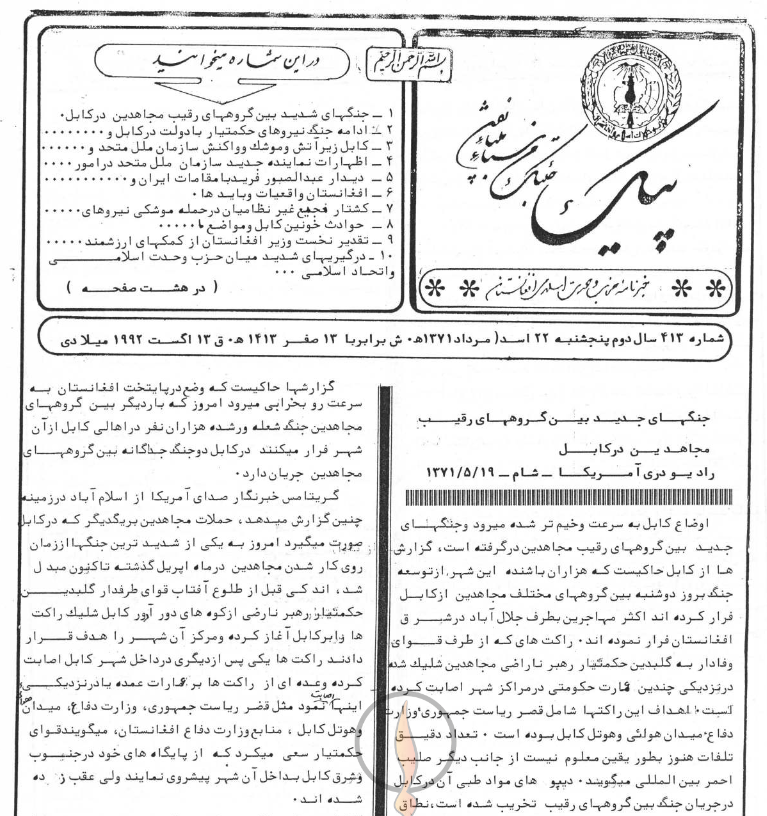 بسم الله الرحمن الرحیم
در این شماره میخوانید
۱ ــ جنگهای شدید بین گروههای رقیب مجاهدین درکابل.
۲ ــ ادامه جنگ نیروهای حکمتیار بادولت درکابل و ........
۳ ــ کابل زیر آتش وموشک وواکنش سازمان ملل متحد و .....
۴ ــ اظهارات نماینده جدید سازمان ملل متحد درامور ....
۵ ــ دیدار عبدالصبور فریدبامقامات ایران و ..........
۶ ــ افغانستان واقعیات وباید ها .
۷ ــ کشتار فجیع غیر نظامیان درحمله موشکی نیروهای .....
۸ ــ حوادث خونین کابل ومواضع .....
۹ ــ تقدیر نخست وزیر افغانستان از کمکهای ارزشمند .....
۱۰ ــ درگیریهای شدید میان حزب وحدت اسلامی
واتحاد اسلامی ...
( در هشت صفحه )
پیک
خبرنامه حزب وحدت اسلامی افغانستان
شماره ۴۱۳ سال دوم پنجشنبه ۲۲ اسد( مرداد ۱۳۷۱ه. ش برابربا ۱۳ صفر ۱۴۱۳ ه. ق ۱۳ اگست ۱۹۹۲ میلادی
جنگهای جدید بین گروههای رقیب
مجاهدین درکابل
رادیو دری آمریکا ــ شام ــ ۱۳۷۱/۵/۱۹
اوضاع کابل به سرعت وخیم تر شده میرود وجنگهای
جدید بین گروههای رقیب مجاهدین درگرفته است، گزارش
ها از کابل حاکیست که هزاران باشنده این شهر ازتوسعه
جنگ بروز دوشنبه بین گروههای مختلف مجاهدین ازکابل
فرار کرده اند اکثر مهاجرین بطرف جلال آباد درشرق
افغانستان فرار نموده اند. راکت های که از طرف قوای
وفادار به گلبدین حکمتیار رهبر ناراضی مجاهدین شلیک شده
درنزدیکی چندین عمارت حکومتی درمراکز شهر اصابت کرده
است. اهداف این راکتها شامل قصر ریاست جمهوری. وزارت
دفاع. میدان هوائی وهوتل کابل بوده است . تعداد دقیق
تلفات هنوز بطور یقین معلوم نیست از جانب دیگر صلیب
احمر بین المللی میگویند. دیپو های مواد طبی آن درکابل
درجریان جنگ بین گروههای رقیب تخریب شده است، نطاق
گزارشها حاکیست که وضع درپایتخت افغانستان به
سرعت رو بخرابی میرود امروز که باردیگر بین گروههای
مجاهدین جنگ شعله ورشده هزاران نفر دراهالی کابل ازآن
شهر فرار میکنند درکابل دوجنگ جداگانه بین گروههای
مجاهدین جریان دارد.
گریتامس خبرنگار صدای آمریکا از اسلام آباد درزمینه
چنین گزارش میدهد، حملات مجاهدین بریگدیگر که درکابل
صورت میگیرد امروز به یکی از شدید ترین جنگها اززمان
روی کار شدن مجاهدین درماه اپریل گذشته تاکنون مبدل
شد، اند کی قبل از طلوع آفتاب قوای طرفدار گلبدین
حکمتیار رهبر ناراضی ازکوه های دور آور کابل شلیک راکت
ها رابرکابل آغاز کرده ومرکز آن شهر را هدف قرار
دادند راکت ها یکی پس ازدیگری درداخل شهر کابل اصابت
کرده وعده ای از راکت ها بر عمارات عمده یادرنزدیکی
اینها اصابت نمود مثل قصر ریاست جمهوری، وزارت دفاع، میدان
وهوتل کابل ، منابع وزارت دفاع افغانستان، میگویندقوای
حکمتیار سعی میکرد که از پایگاه های خود درجنوب
وشرق کابل بداخل آن شهر پیشروی نمایند ولی عقب زده
شده اند.